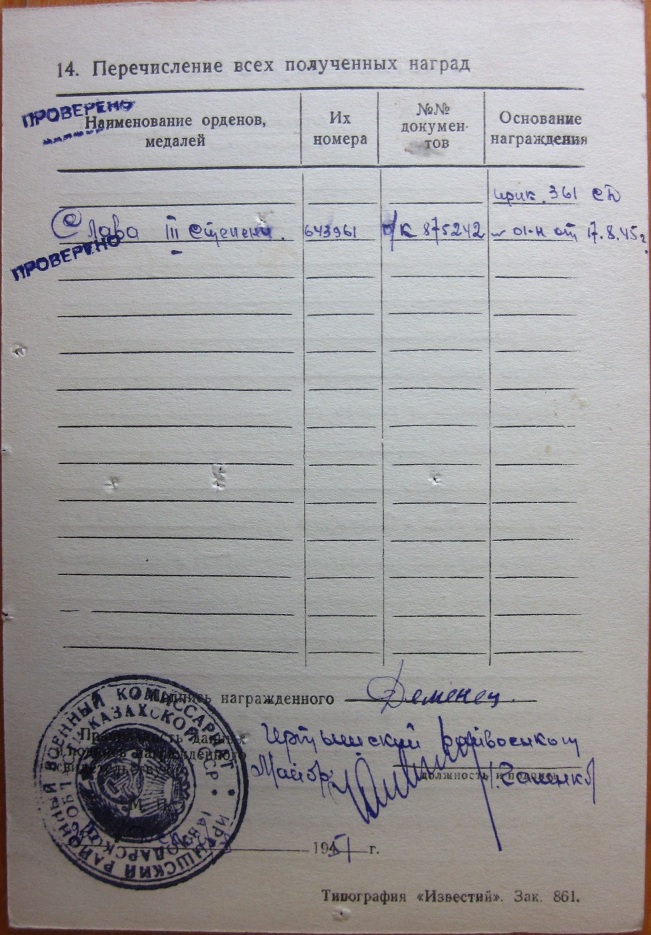 14. Перечисление всех полученных наград
ПРОВЕРЕНО
Наименование орденов, медалей
Их номера
№№ документов
Основание награждения
прик. 361 сд
Слава III степени. 643961 о/к 875242 № 01-н от 17.8.45г
ПРОВЕРЕНО
Подпись награжденного Деменец
Правильность данных
и подписи награжденного
свидетельствую
Иртышский райвоенком
Майор
должность и подпись
М. П.
ИРТЫШСКИЙ РАЙОННЫЙ ВОЕННЫЙ КОМИССАРИАТ
ПАВЛОДАРСКОЙ ОБЛ. КАЗАХСКОЙ ССР
1951 г.
Типография «Известий». Зак. 861.